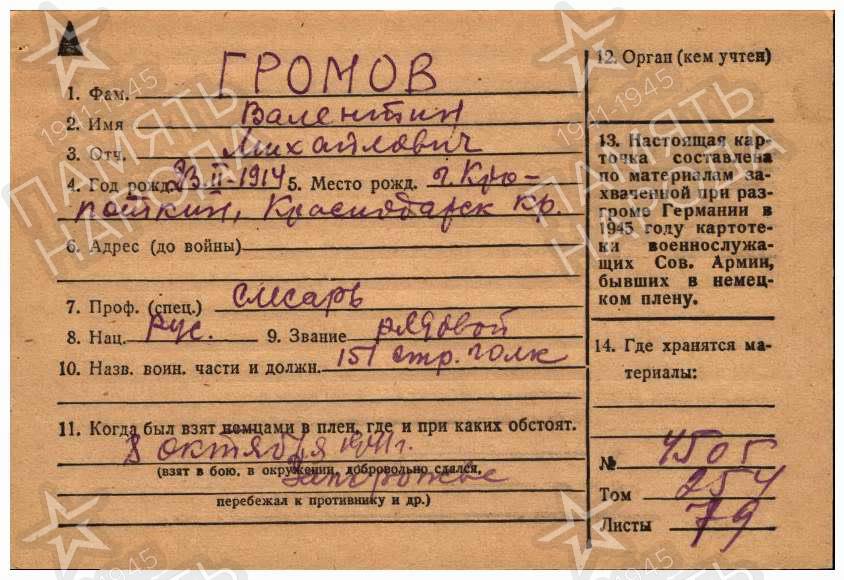 1. Фам. ГРОМОВ
2. Имя Валентин
3. Отч. Михайлович
4. Год рожд. 23.II-1914 5. Место рожд. г. Кро-
поткин, Краснодарск кр.
6. Адрес (до войны)
7. Проф. (спец.) слесарь
8. Нац. Рус. 9. Звание рядовой
10. Назв. воин. части и должн. 151 стр. полк
11. Когда был взят немцами в плен, где и при каких обстоят.
8 октября 1941 г.
(взят в бою, в окружении, добровольно сдался,
Запорожье
перебежал к противнику и др.)
12. Орган (кем учтен)
13. Настоящая кар-
точка составлена
по материалам за-
хваченной при раз-
громе Германии в
1945 году картоте-
ки военнослужа-
щих Сов. Армии,
бывших в немец-
ком плену.
14. Где хранятся ма-
териалы:
№ 4505
Том 254
Листы 79
1941-1945
ПАМЯТЬ
НАРОДА
1941-1945
ПАМЯТЬ
НАРОДА